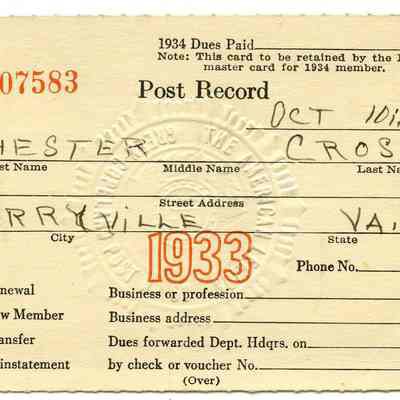 1934 Dues Paid
Note: This card to be retained by the
master card for 1934 member.
07583
Post Record
OCT 10
HESTER CROS
st Name Middle Name Last Na
Street Address
RRYVILLE VA.
City State
1933
Phone No.
newal Business or profession
w Member Business address
ansfer Dues forwarded Dept. Hdqrs. on
instatement by check or voucher No.
(Over)